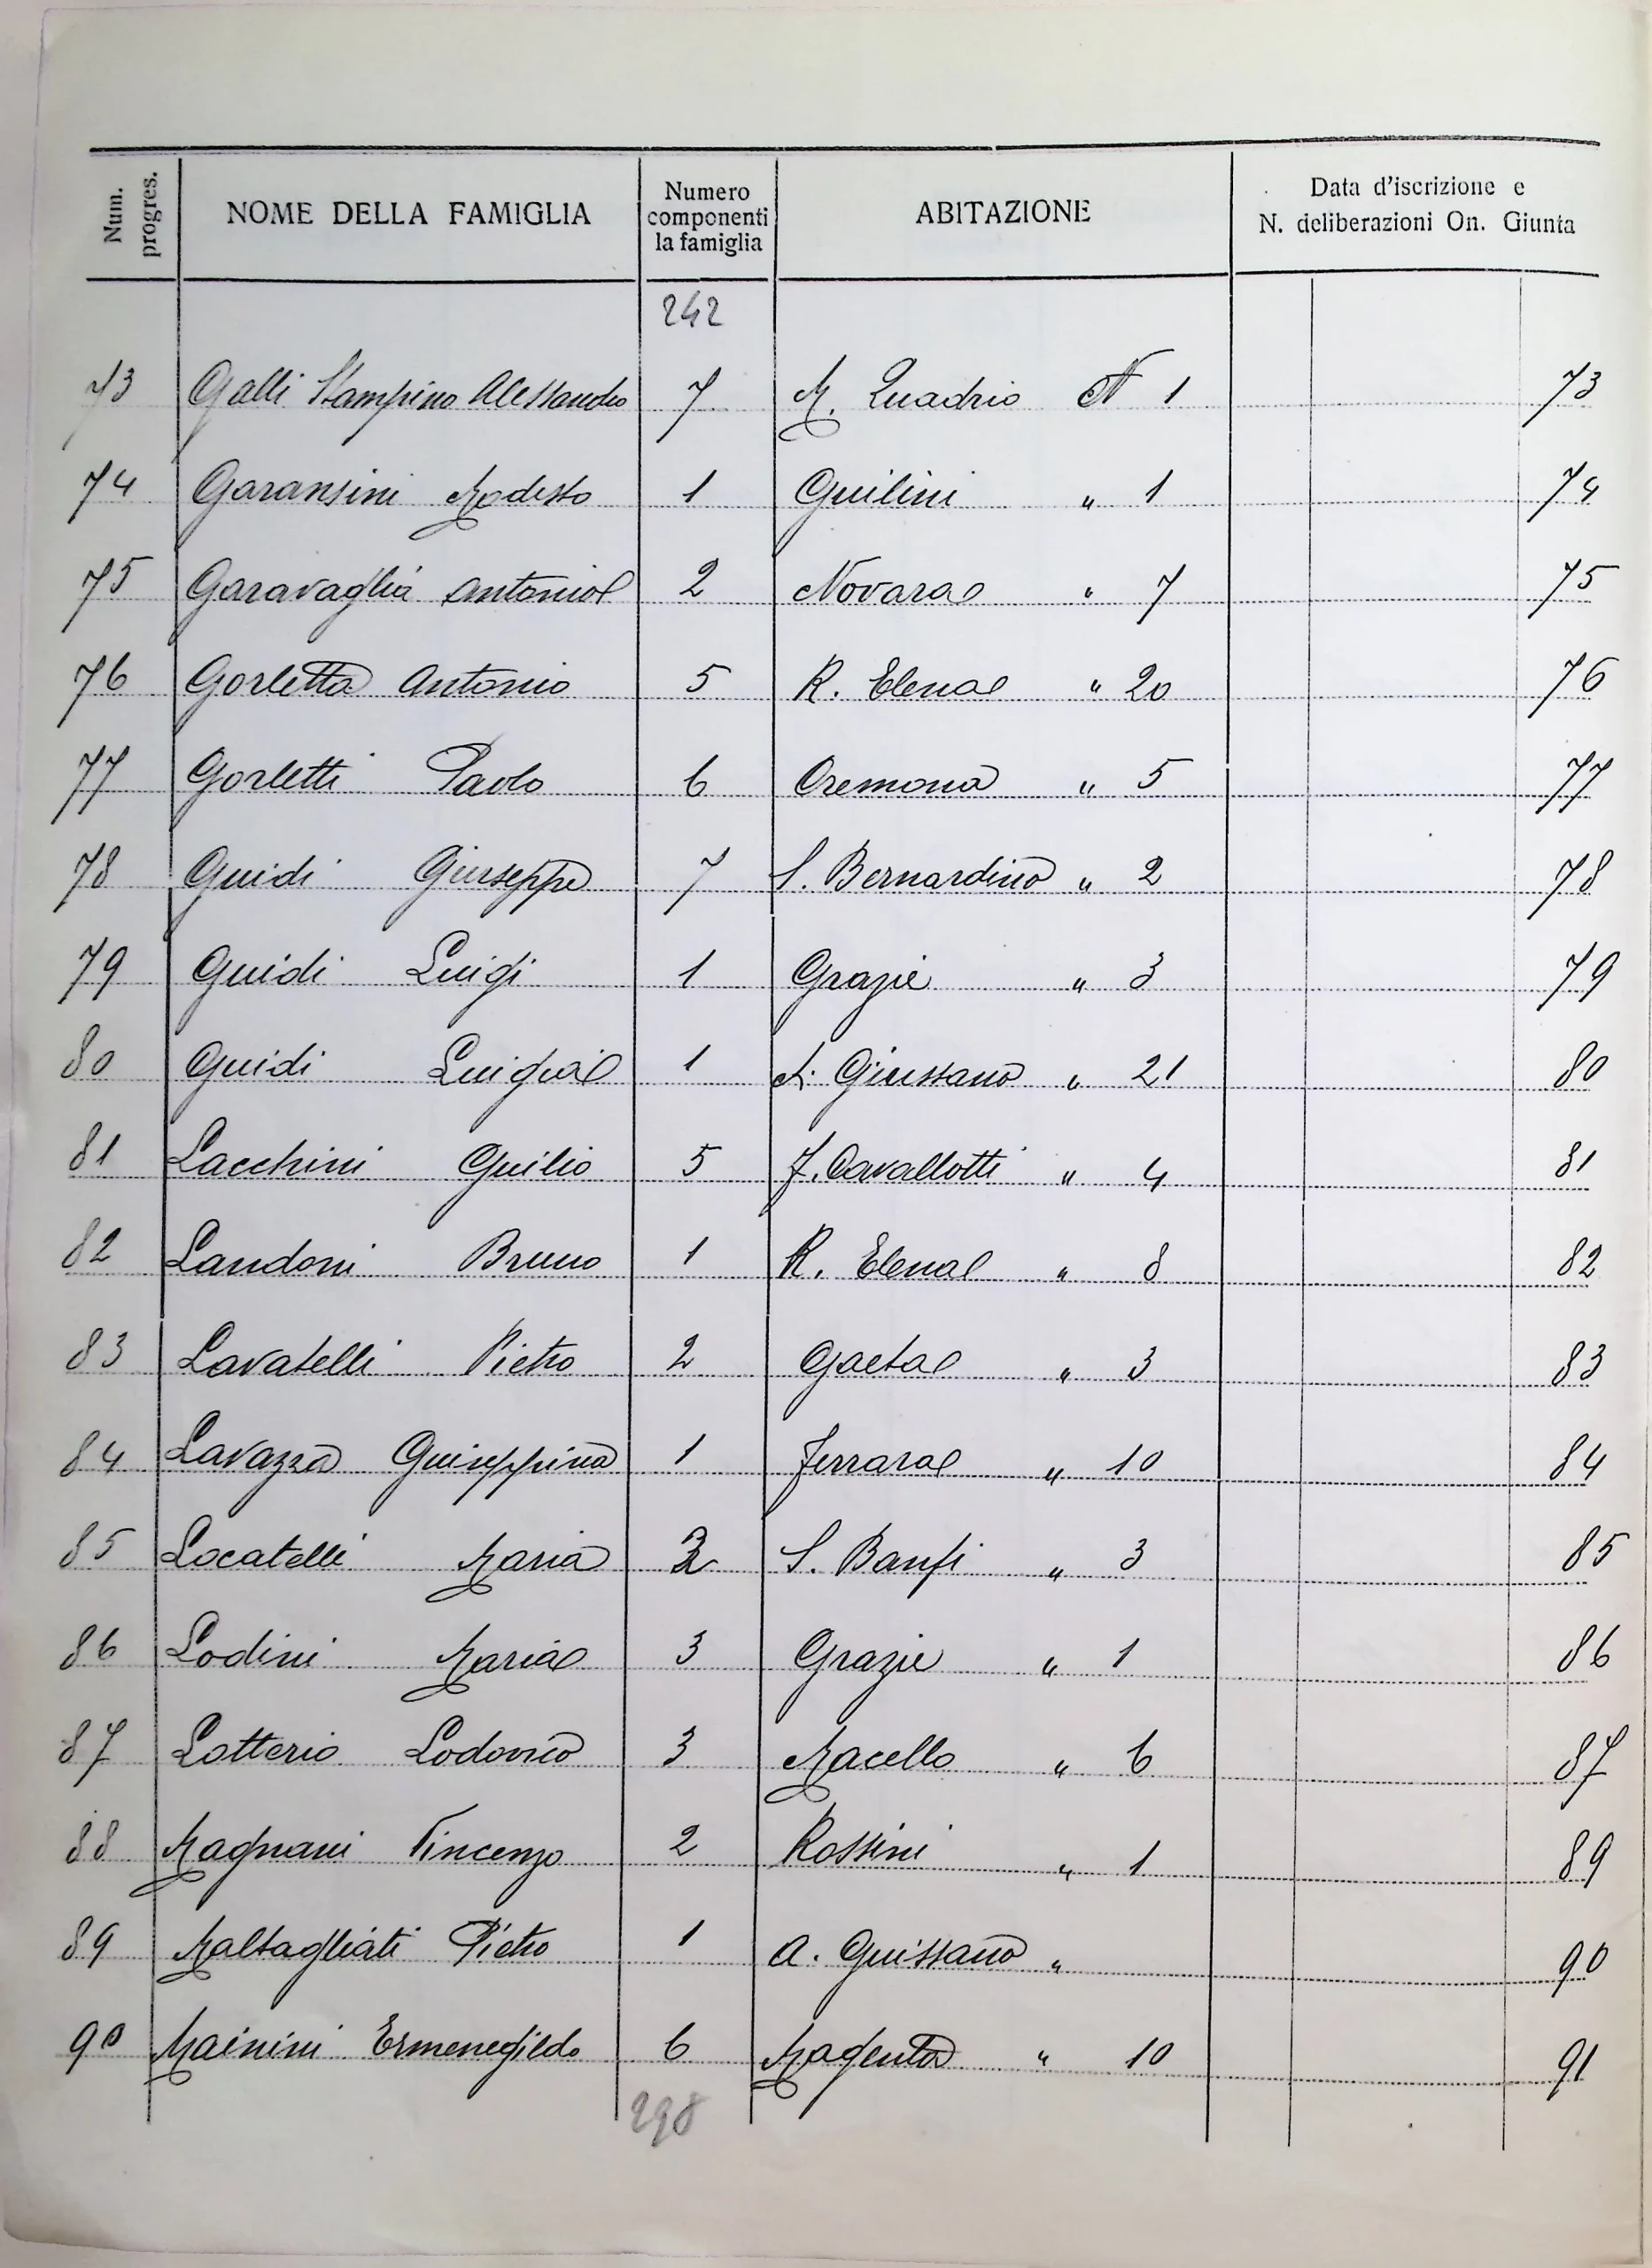 Num. progres. NOME DELLA FAMIGLIA Numero componenti la famiglia ABITAZIONE Data d'iscrizione e N. deliberazioni On. Giunta
242
73 Galli Stampino Alessandro 7 M. Quadrio N 1 73
74 Garansini Modesto 1 Giulini " 1 74
75 Garavaglia Antonia 2 Novara " 7 75
76 Gorletta Antonio 5 R. Elena " 20 76
77 Gorletti Paolo 6 Cremona " 5 77
78 Guidi Giuseppe 7 S. Bernardino " 2 78
79 Guidi Luigi 1 Grazie " 3 79
80 Guidi Luigia 1 A. Giussano " 21 80
81 Lacchini Giulio 5 F. Cavallotti " 4 81
82 Landoni Bruno 1 R. Elena " 8 82
83 Lavatelli Pietro 2 Gaeta " 3 83
84 Lavazza Giuseppina 1 Ferrara " 10 84
85 Locatelli Maria 2 S. Banfi " 3 85
86 Lodini Maria 3 Grazie " 1 86
87 Lotterio Lodovico 3 Macello " 6 87
88 Magnani Vincenzo 2 Rossini " 1 89
89 Maltagliati Pietro 1 A. Giussano " 90
90 Mainini Ermenegildo 6 Magenta " 10 91
298